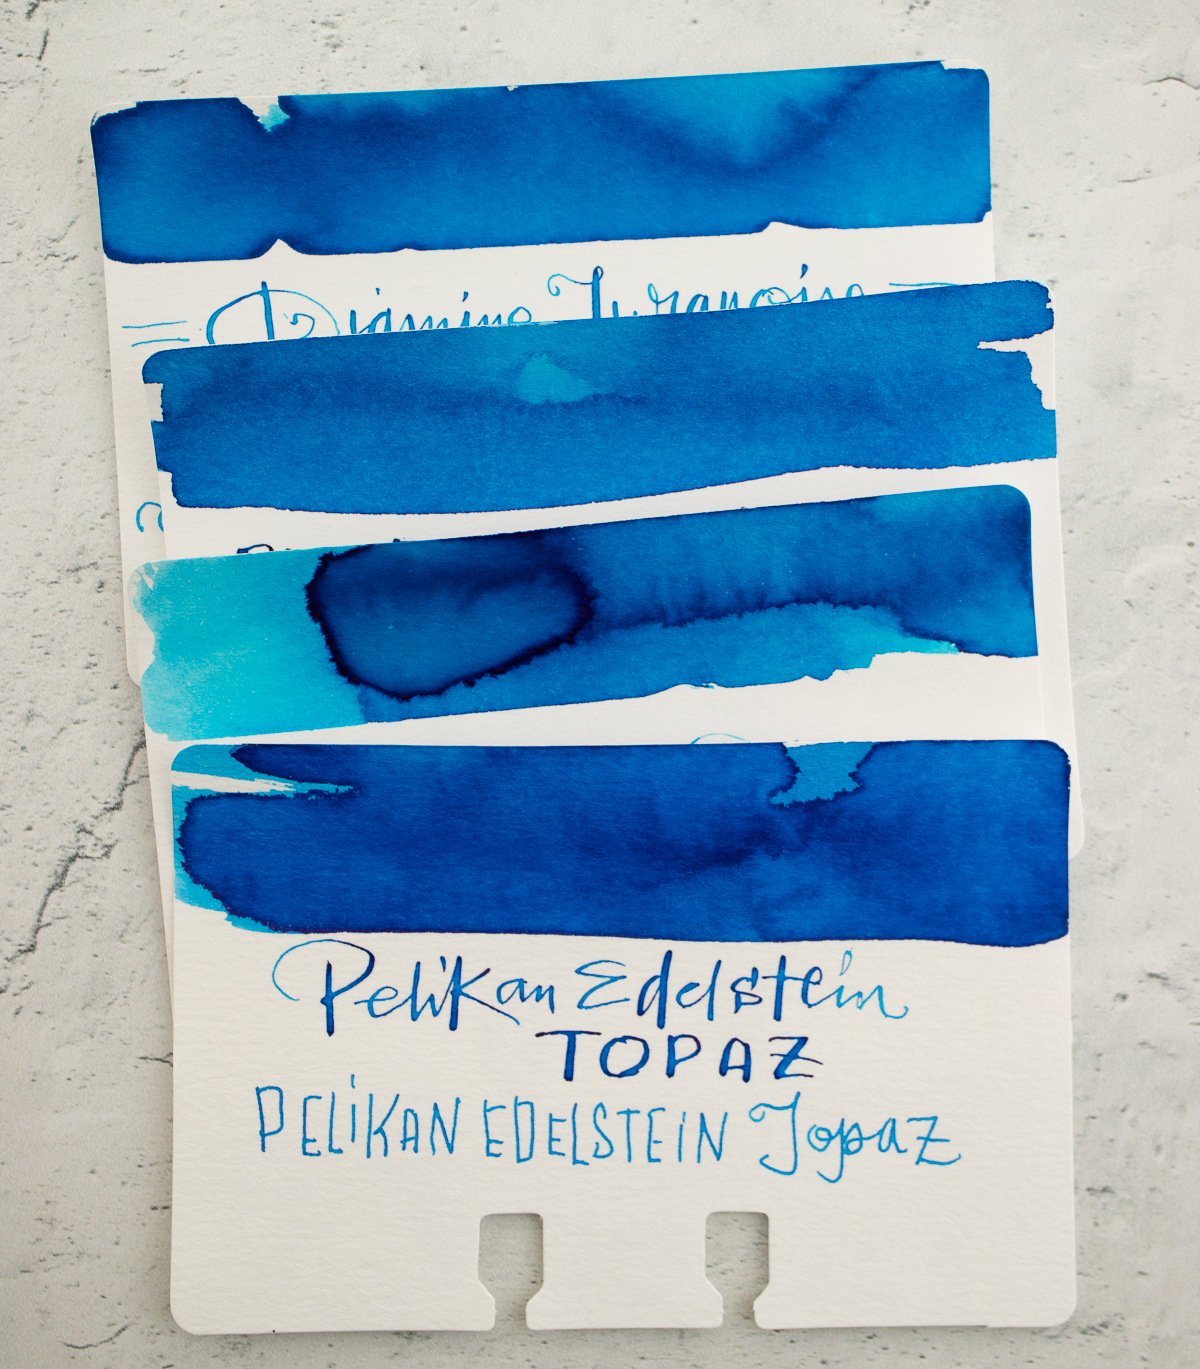 Diamine Turquoise
Pelikan Edelstein
TOPAZ
PELiKAN EDELSTEiN Topaz